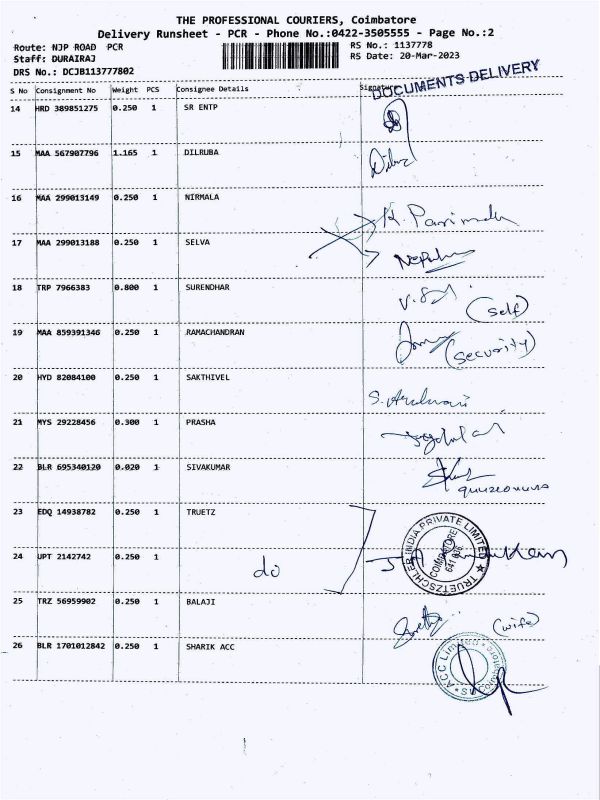 THE PROFESSIONAL COURIERS, Coimbatore
Delivery Runsheet - PCR - Phone No.:0422-3505555 - Page No.:2
Route: NJP ROAD PCR
Staff: DURAIRAJ
DRS No.: DCJB113777802
RS No.: 1137778
RS Date: 20-Mar-2023
DOCUMENTS DELIVERY
S No Consignment No Weight PCS Consignee Details Signature
14 HRD 389851275 0.250 1 SR ENTP
15 MAA 567907796 1.165 1 DILRUBA
16 MAA 299013149 0.250 1 NIRMALA
17 MAA 299013188 0.250 1 SELVA
18 TRP 7966383 0.800 1 SURENDHAR (self)
19 MAA 859391346 0.250 1 RAMACHANDRAN (security)
20 HYD 82084100 0.250 1 SAKTHIVEL
21 MYS 29228456 0.300 1 PRASHA
22 BLR 695340120 0.020 1 SIVAKUMAR
23 EDQ 14938782 0.250 1 TRUETZ
24 UPT 2142742 0.250 1 do
TRUETZSCHLER INDIA PRIVATE LIMITED
COIMBATORE
25 TRZ 56959902 0.250 1 BALAJI (wife)
26 BLR 1701012842 0.250 1 SHARIK ACC
ACC Limited